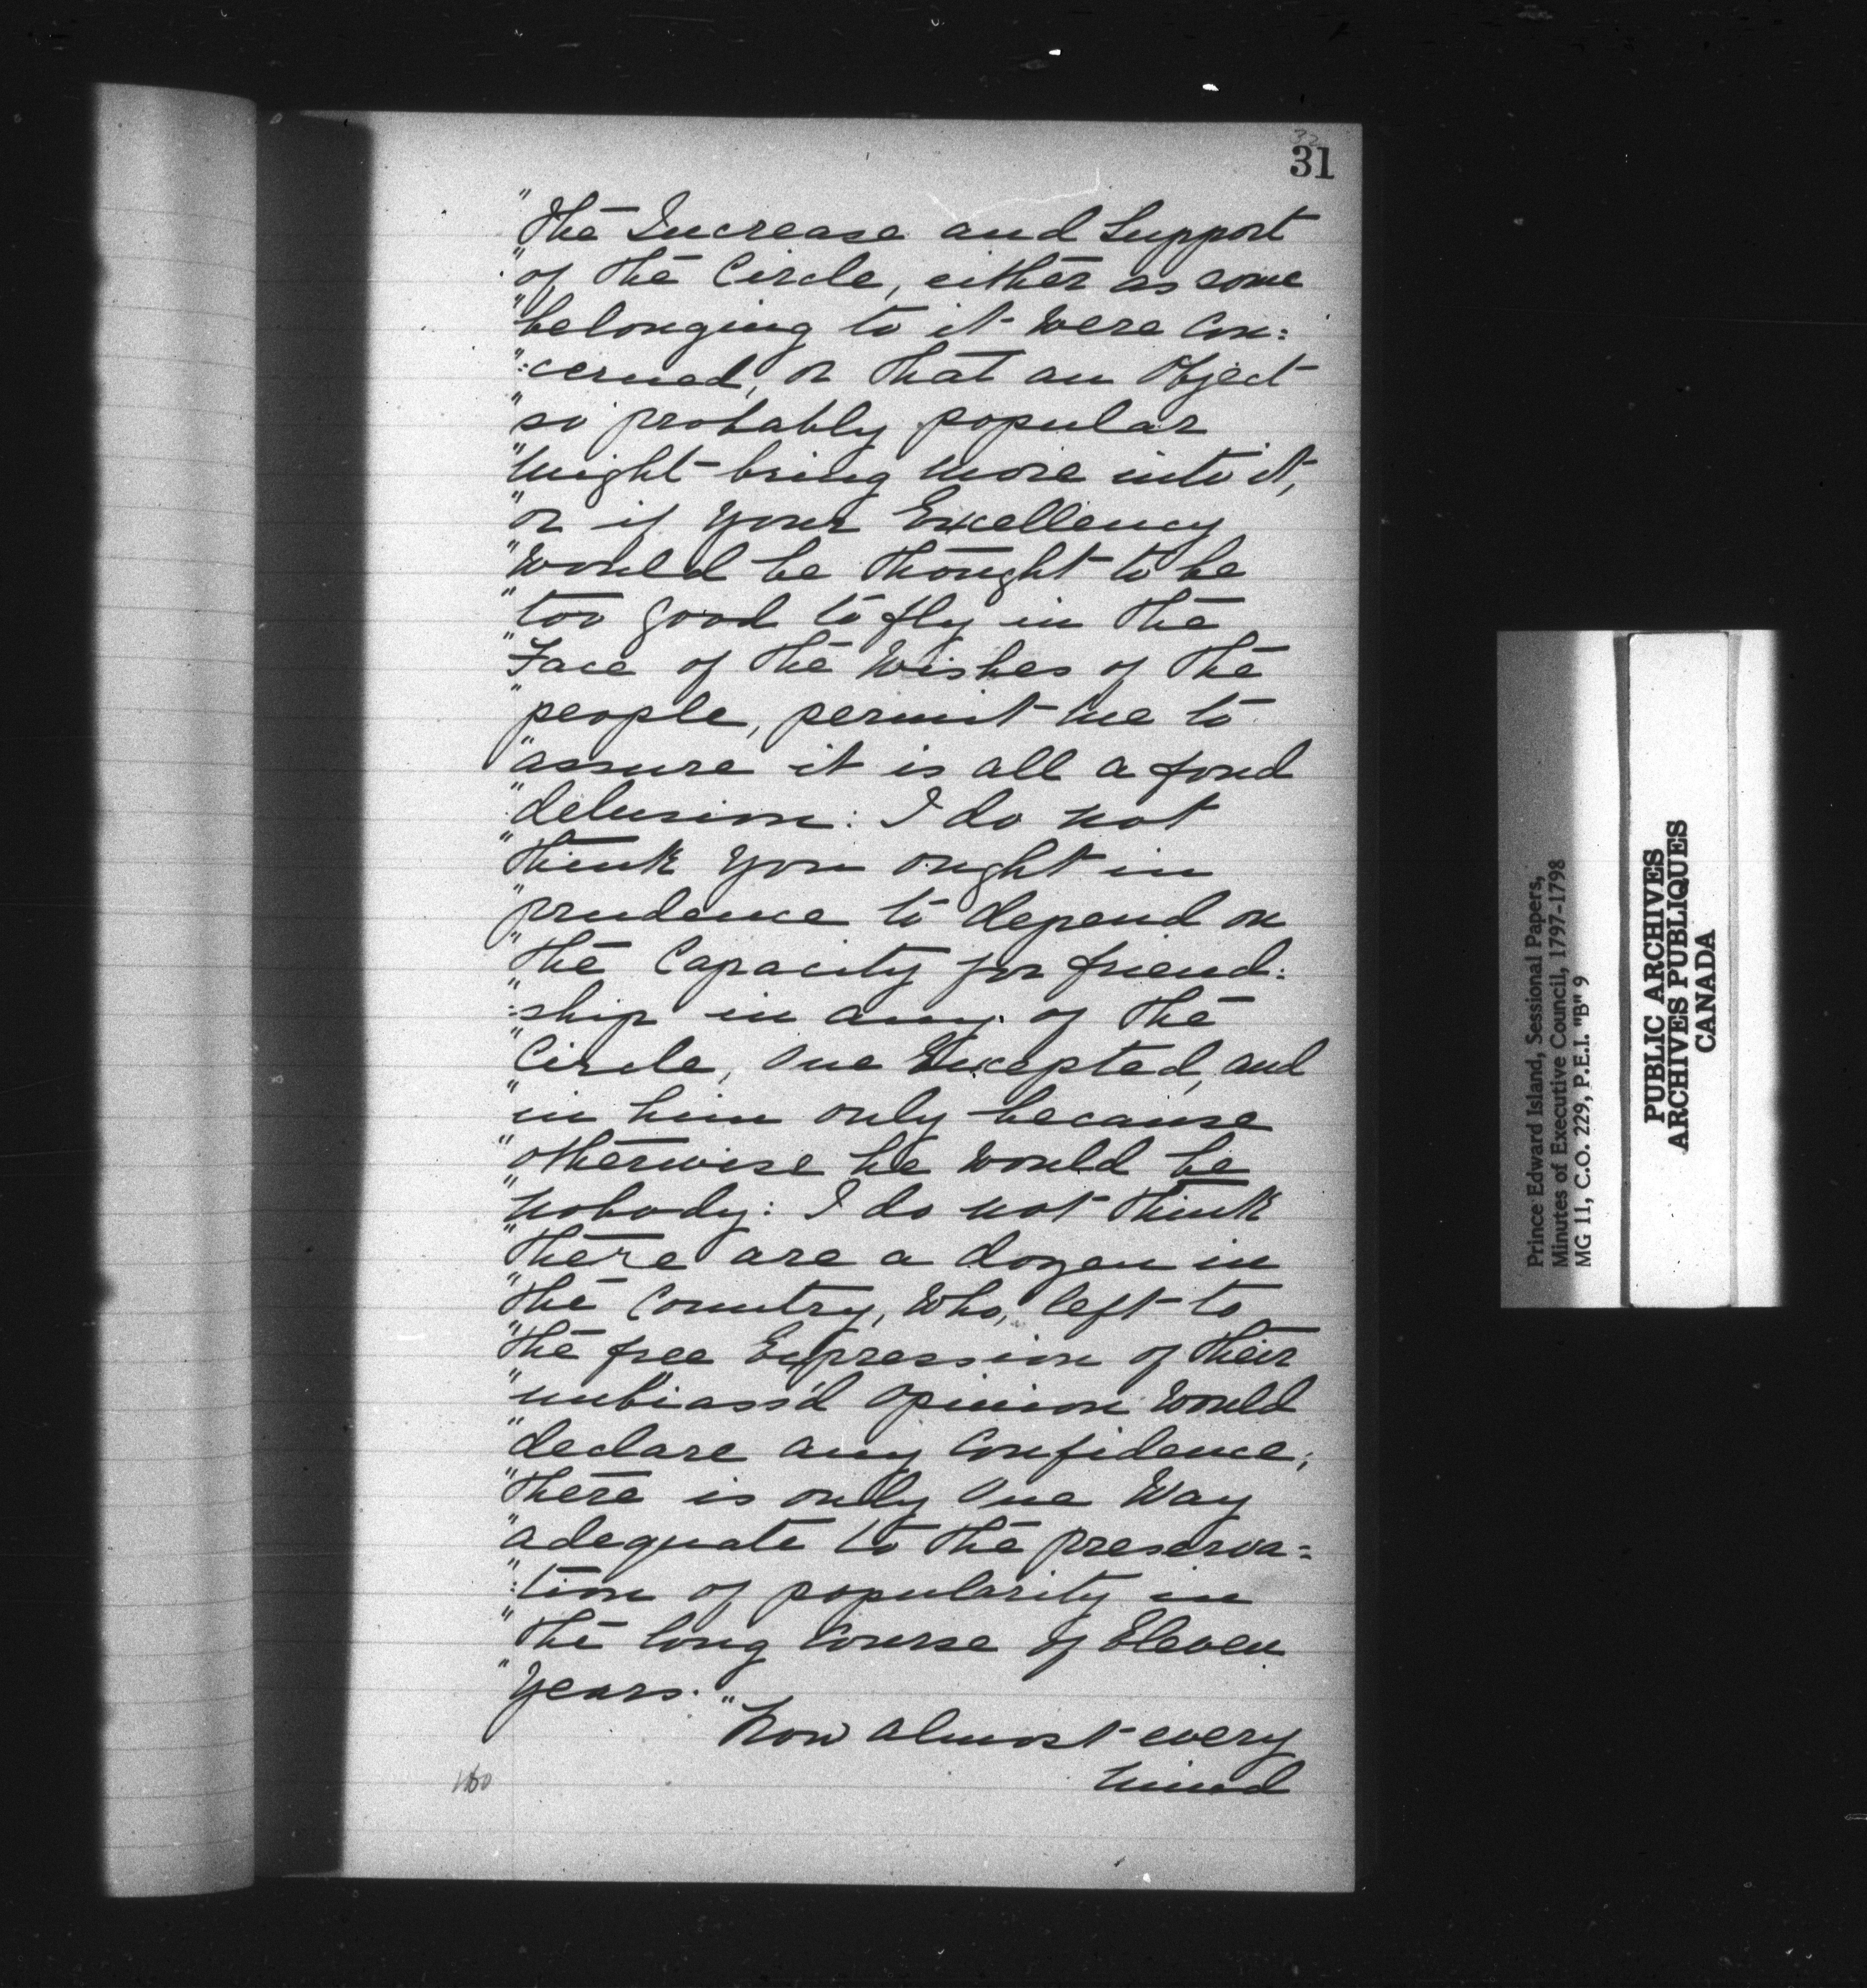 32
31
"The Increase and Support
"of the Circle, either as some
"belonging to it were Con:
":cerned, or that an Object
"so probably popular
"might bring more into it,
"or if your Excellency
"would be thought to be
"too good to fly in the
"Face of the Wishes of the
"people, permit me to
"assure it is all a fond
"delusion: I do not
"think you ought in
"prudence to depend on
"the Capacity for friend:
":ship in any of the
"Circle, One Excepted, and
"in him only because
"otherwise he would be
"nobody: I do not think
"there are a dozen in
"the Country, Who, left to
"the free Expression of their
"unbiass'd Opinion Would
"declare any Confidence;
"there is only One Way
"adequate to the preserva=
":tion of popularity in
"the long Course of Eleven
"Years."
Now almost every
mind
Prince Edward Island, Sessional Papers,
Minutes of Executive Council, 1797-1798
MG 11, C.O. 229, P.E.I. "B" 9
PUBLIC ARCHIVES
ARCHIVES PUBLIQUES
CANADA